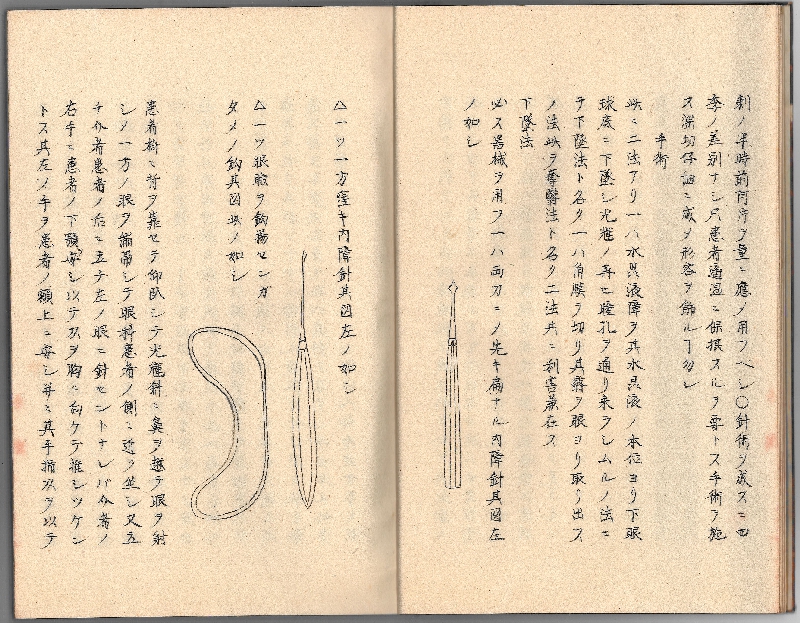 剤ノ半時前荷斤ヲ量ニ應メ用フヘシ〇針術ヲ成スニ四
季ノ差別ナシ只患者適温ニ保摂スルヲ要トス手術ヲ施
ス深切
ニ
威メ形容ヲ飾ル丁勿レ
手術
此ニ二法アリ一ハ水晶液障ヲ其水晶液ノ本位ヨリ下眼
球底ニ下墜シ光
ノ再ヒ瞳孔ヲ通リ来ラシムルノ法ニ
テ下墜法ト名ク一ハ角膜ヲ切リ其翳ヲ眼ヨリ取リ出ス
ノ法此ヲ奪翳法ト名ク二法共ニ利害兼在ス
下墜法
必ス器械ヲ用フ一ハ両刀ニノ先キ扁ナル内障針其図左
ノ如シ
△一ツ一方窪キ内障針其図左ノ如シ
△一ツ眼瞼ヲ鈎揚センガ
タメノ鈎其図此ノ如シ
患者椅ニ背ヲ靠セテ仰臥シテ光
斜ニ鼻ヲ越テ眼ヲ射
シメ一方ノ眼ヲ繃帯シテ眼科患者ノ側ニ近ク坐シ又立
チ介者患者ノ后ニ立チ左ノ眼ニ針セントナレバ介者ノ
右手ニ患者ノ下顎
安シ以テ
ヲ胸ニ向ケテ推シツケン
トス其左ノ手ヲ患者ノ額上ニ安シ并ニ其手指以ヲ以テ